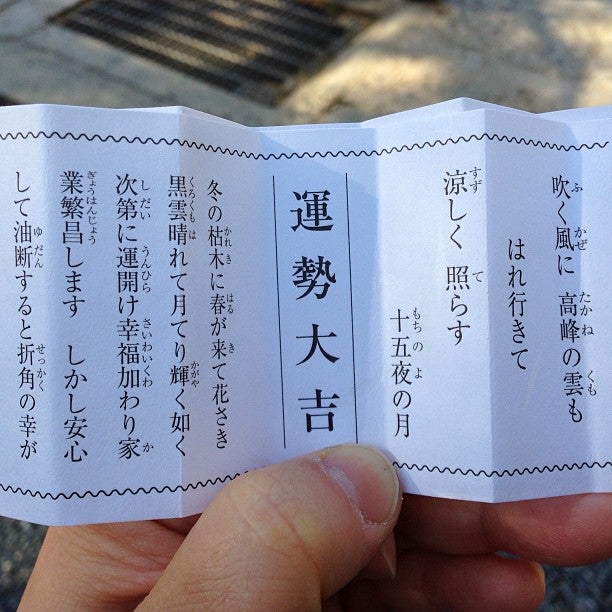 吹く風に 高峰の雲も
はれ行きて
涼しく 照らす
十五夜の月
運勢大吉
冬の枯木に春が来て花さき
黒雲晴れて月てり輝く如く
次第に運開け幸福加わり家
業繁昌します しかし安心
して油断すると折角の幸が